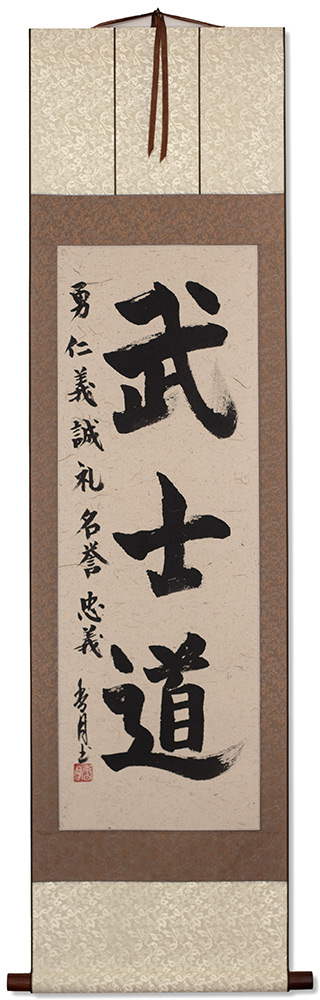 武士道
勇仁義誠礼名誉忠義
香月書